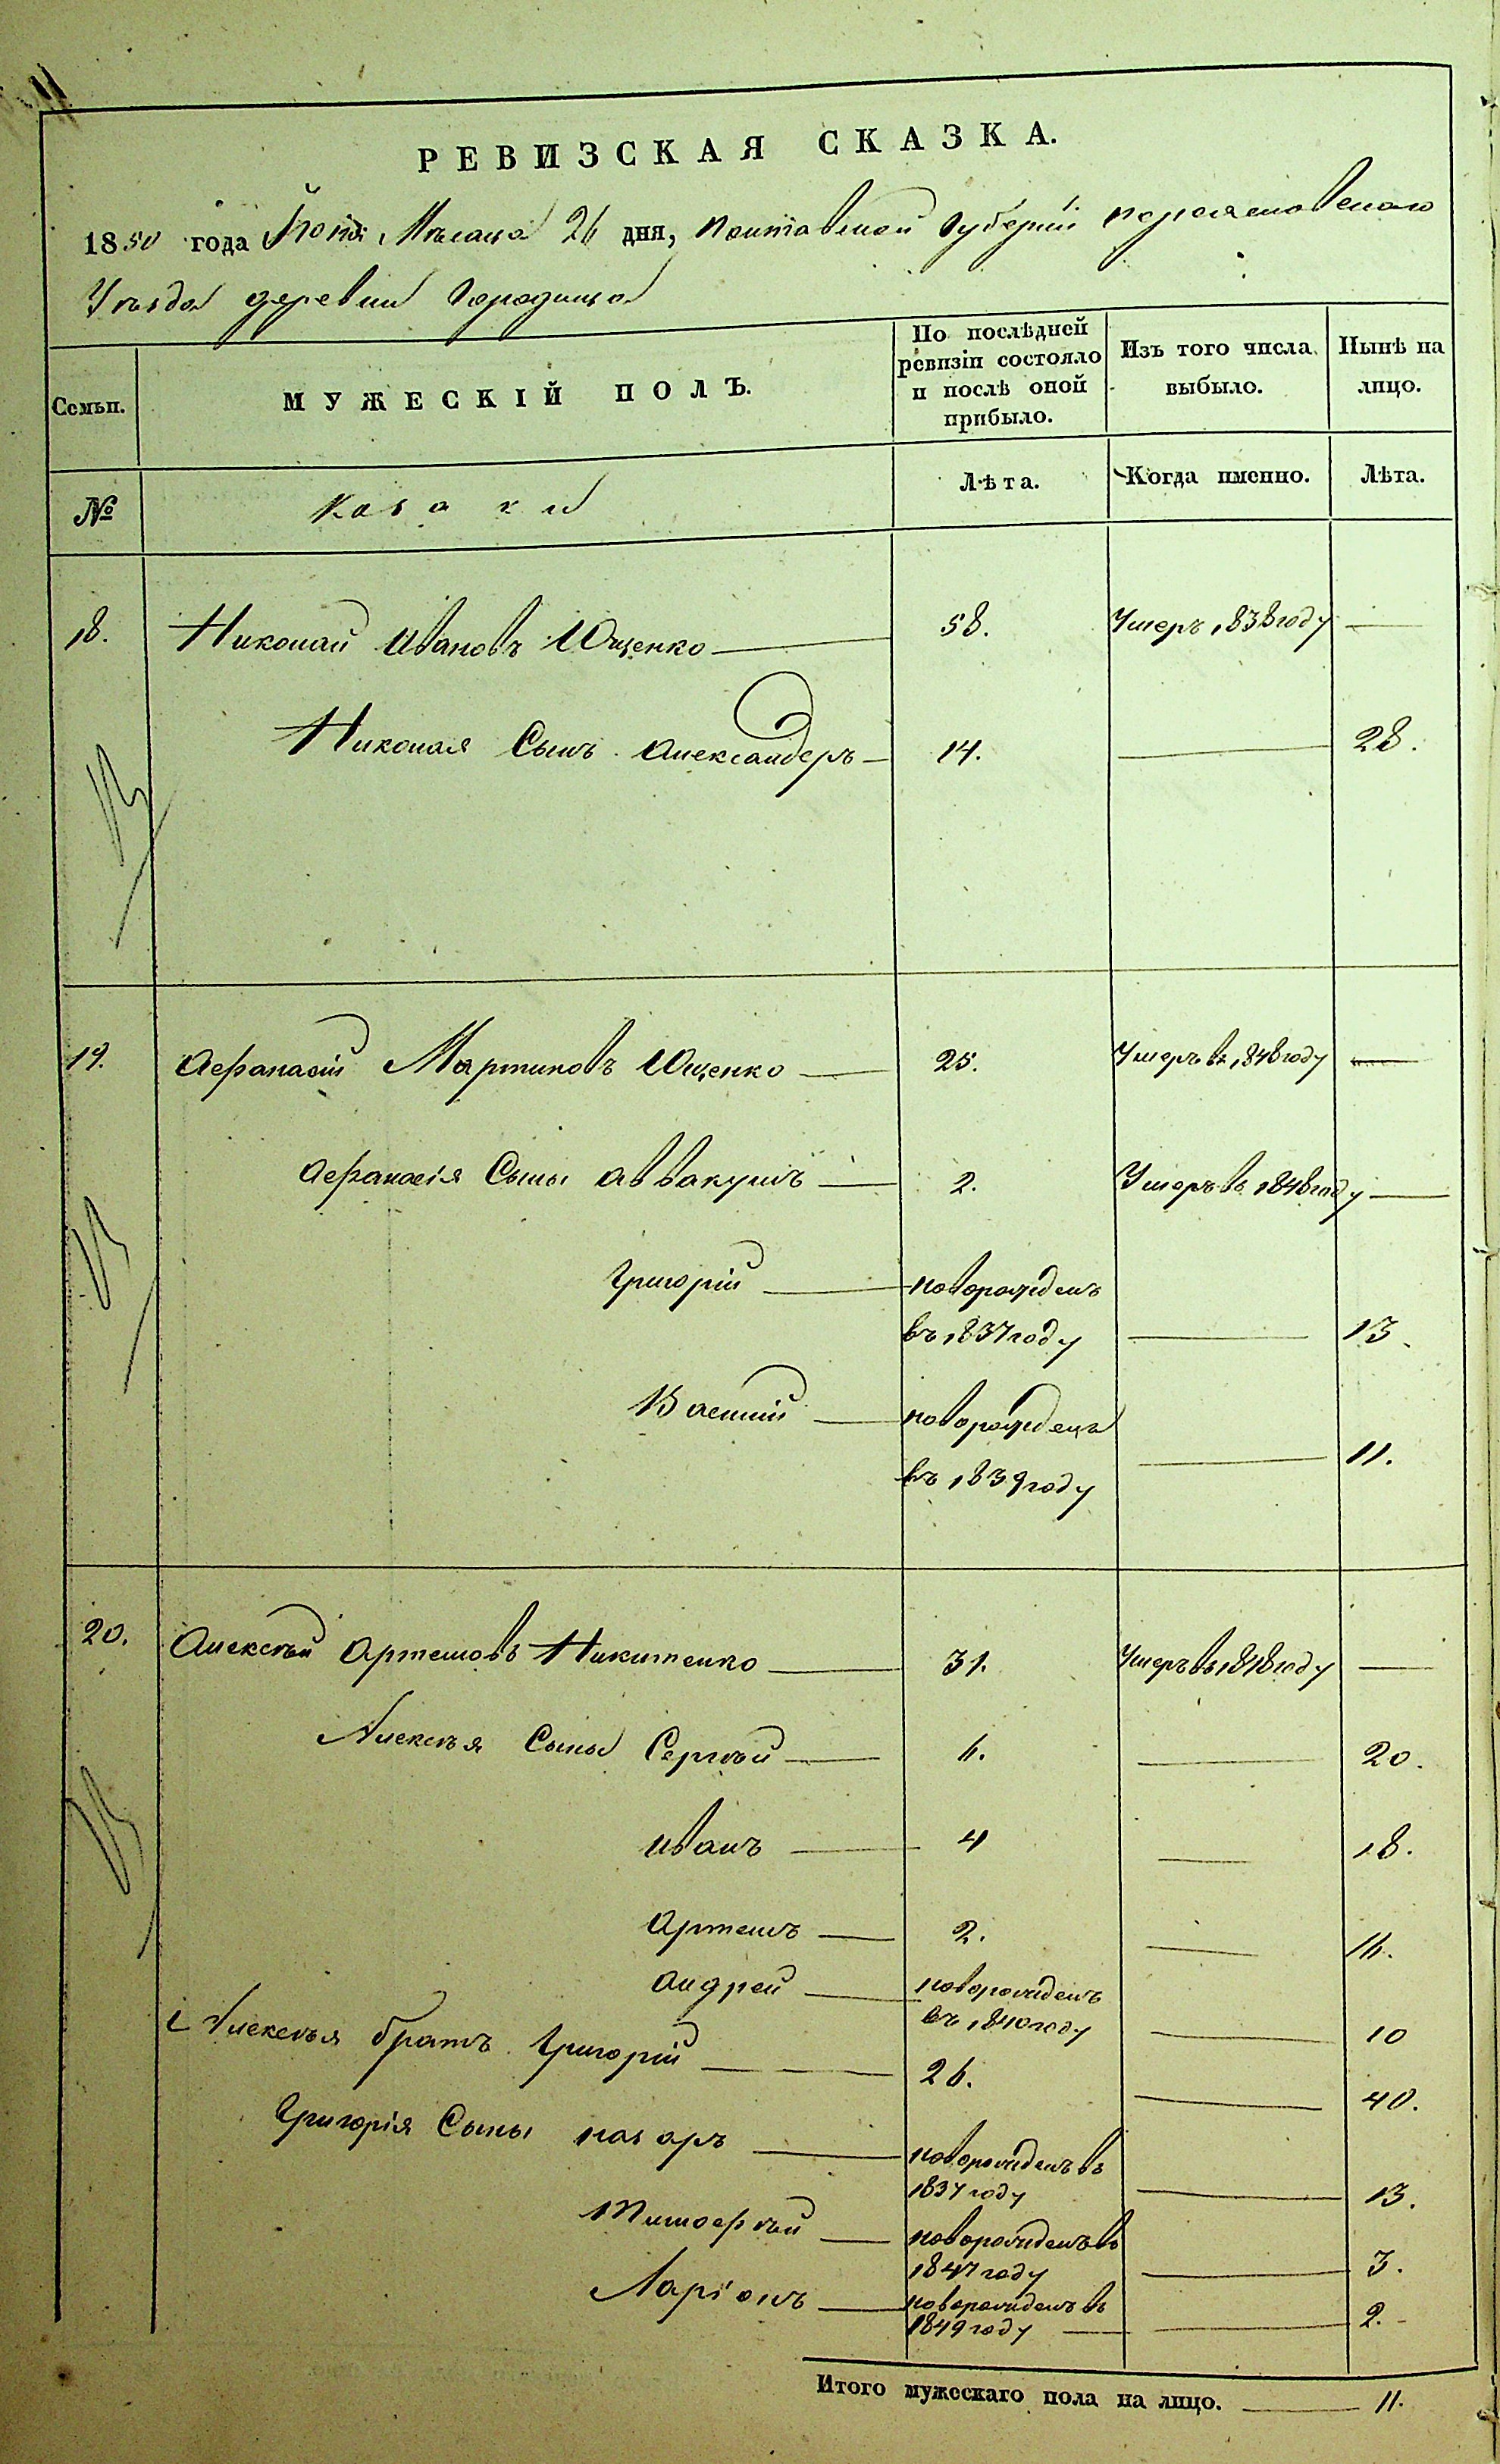 11
РЕВИЗСКАЯ СКАЗКА.
1850 года Мѣсяца 26 дня, Полтавской Губерніи Переяславскаго
Уѣзда деревни Городища
Семьи. МУЖЕСКІЙ ПОЛЪ. По послѣдней ревизіи состояло и послѣ оной прибыло. Изъ того числа выбыло. Нынѣ на лицо.
№ Козаки Лѣта. Когда именно. Лѣта.
18. Николай Ивановъ Ющенко 58. Умеръ 1838 году —
Николая Сынъ Александеръ 14. — 28.
19. Афанасій Мартиновъ Ющенко 25. Умеръ въ 1848 году —
Афанасія Сыны Аввакумъ 2. Умеръ въ 1848 году —
Григорій новорожденъ
въ 1837 году — 13.
Василій новорожденъ
въ 1839 году — 11.
20. Алексѣй Артемовъ Никитенко 31. Умеръ въ 1848 году —
Алексѣя Сыны Сергѣй 6. — 20.
Иванъ 4 — 18.
Артемъ 2. — 16.
Андрей новорожденъ
въ 1840 году — 10
Алексѣя братъ Григорій 26. — 40.
Григорія Сыны Назаръ новорожденъ въ
1837 году — 13.
Тимофѣй новорожденъ въ
1847 году — 3.
Ларіонъ новорожденъ въ
1849 году — 2.
Итого мужескаго пола на лицо. — 11.